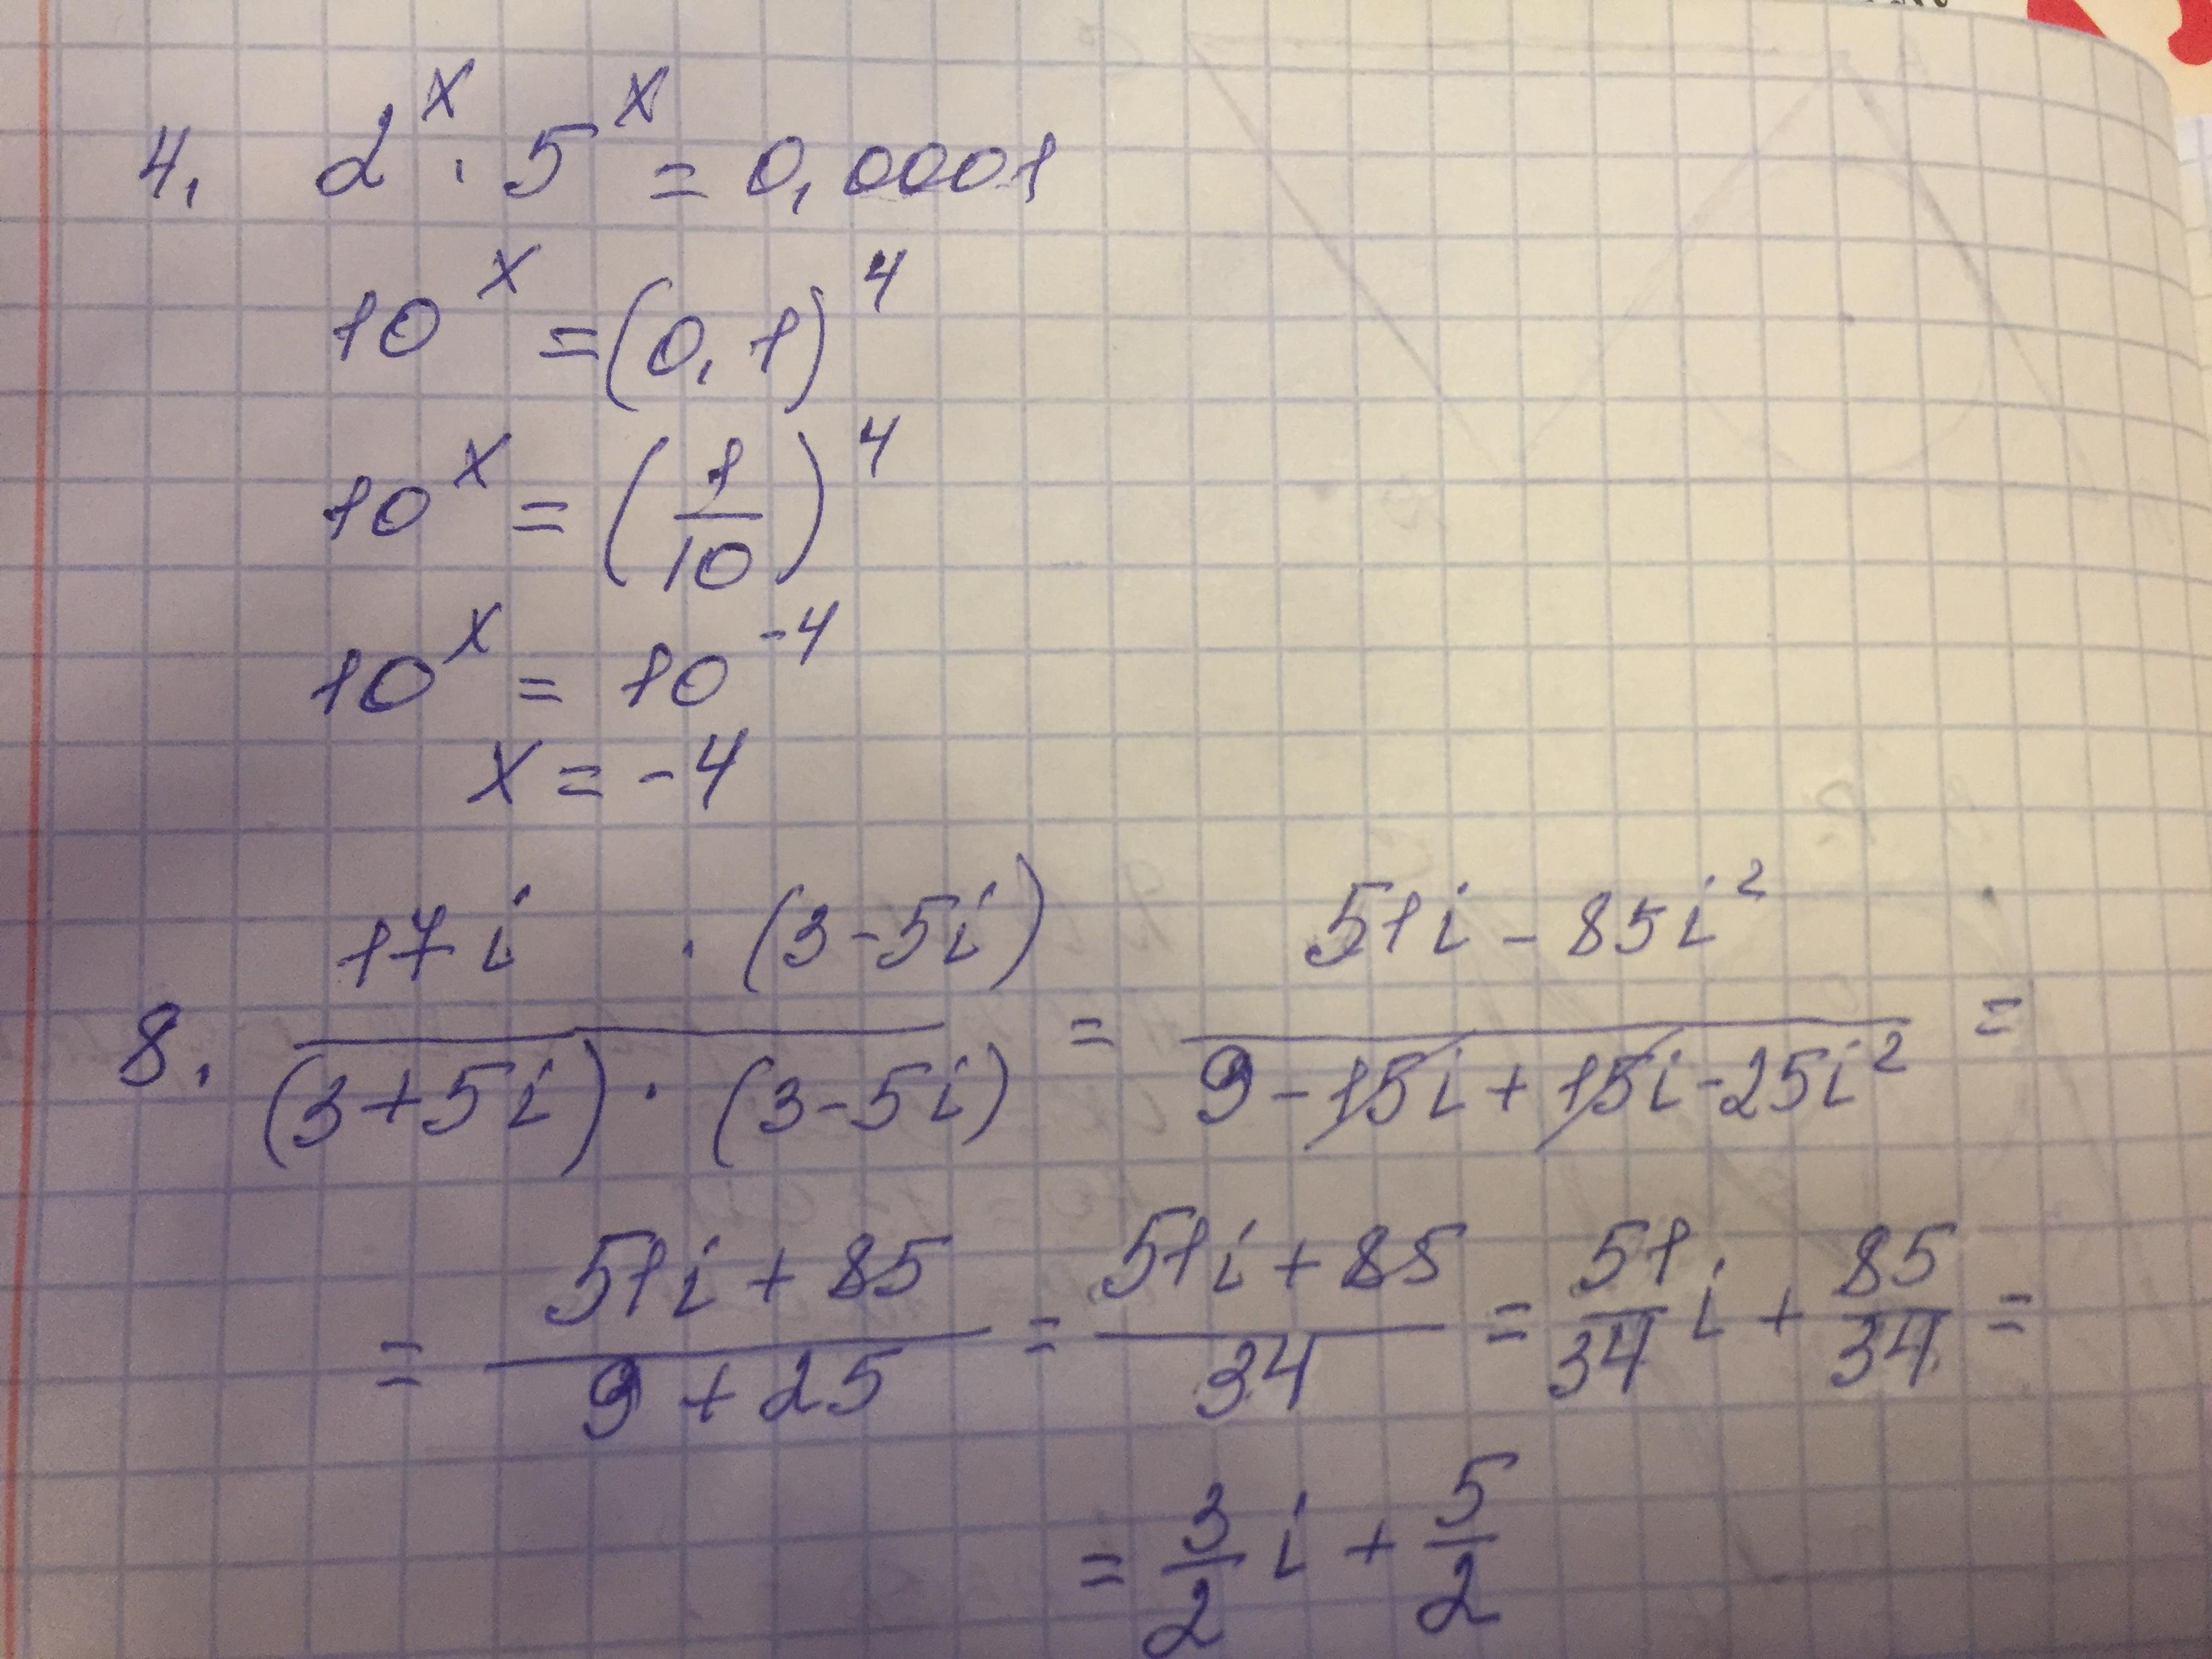 4. 2^x · 5^x = 0,0001
10^x = (0,1)^4
10^x = (1/10)^4
10^x = 10^-4
x = -4
8. 17i · (3-5i) / (3+5i) · (3-5i) = 51i - 85i² / 9 - 15i + 15i - 25i² =
= 51i + 85 / 9 + 25 = 51i + 85 / 34 = 51/34 i + 85/34 =
= 3/2 i + 5/2